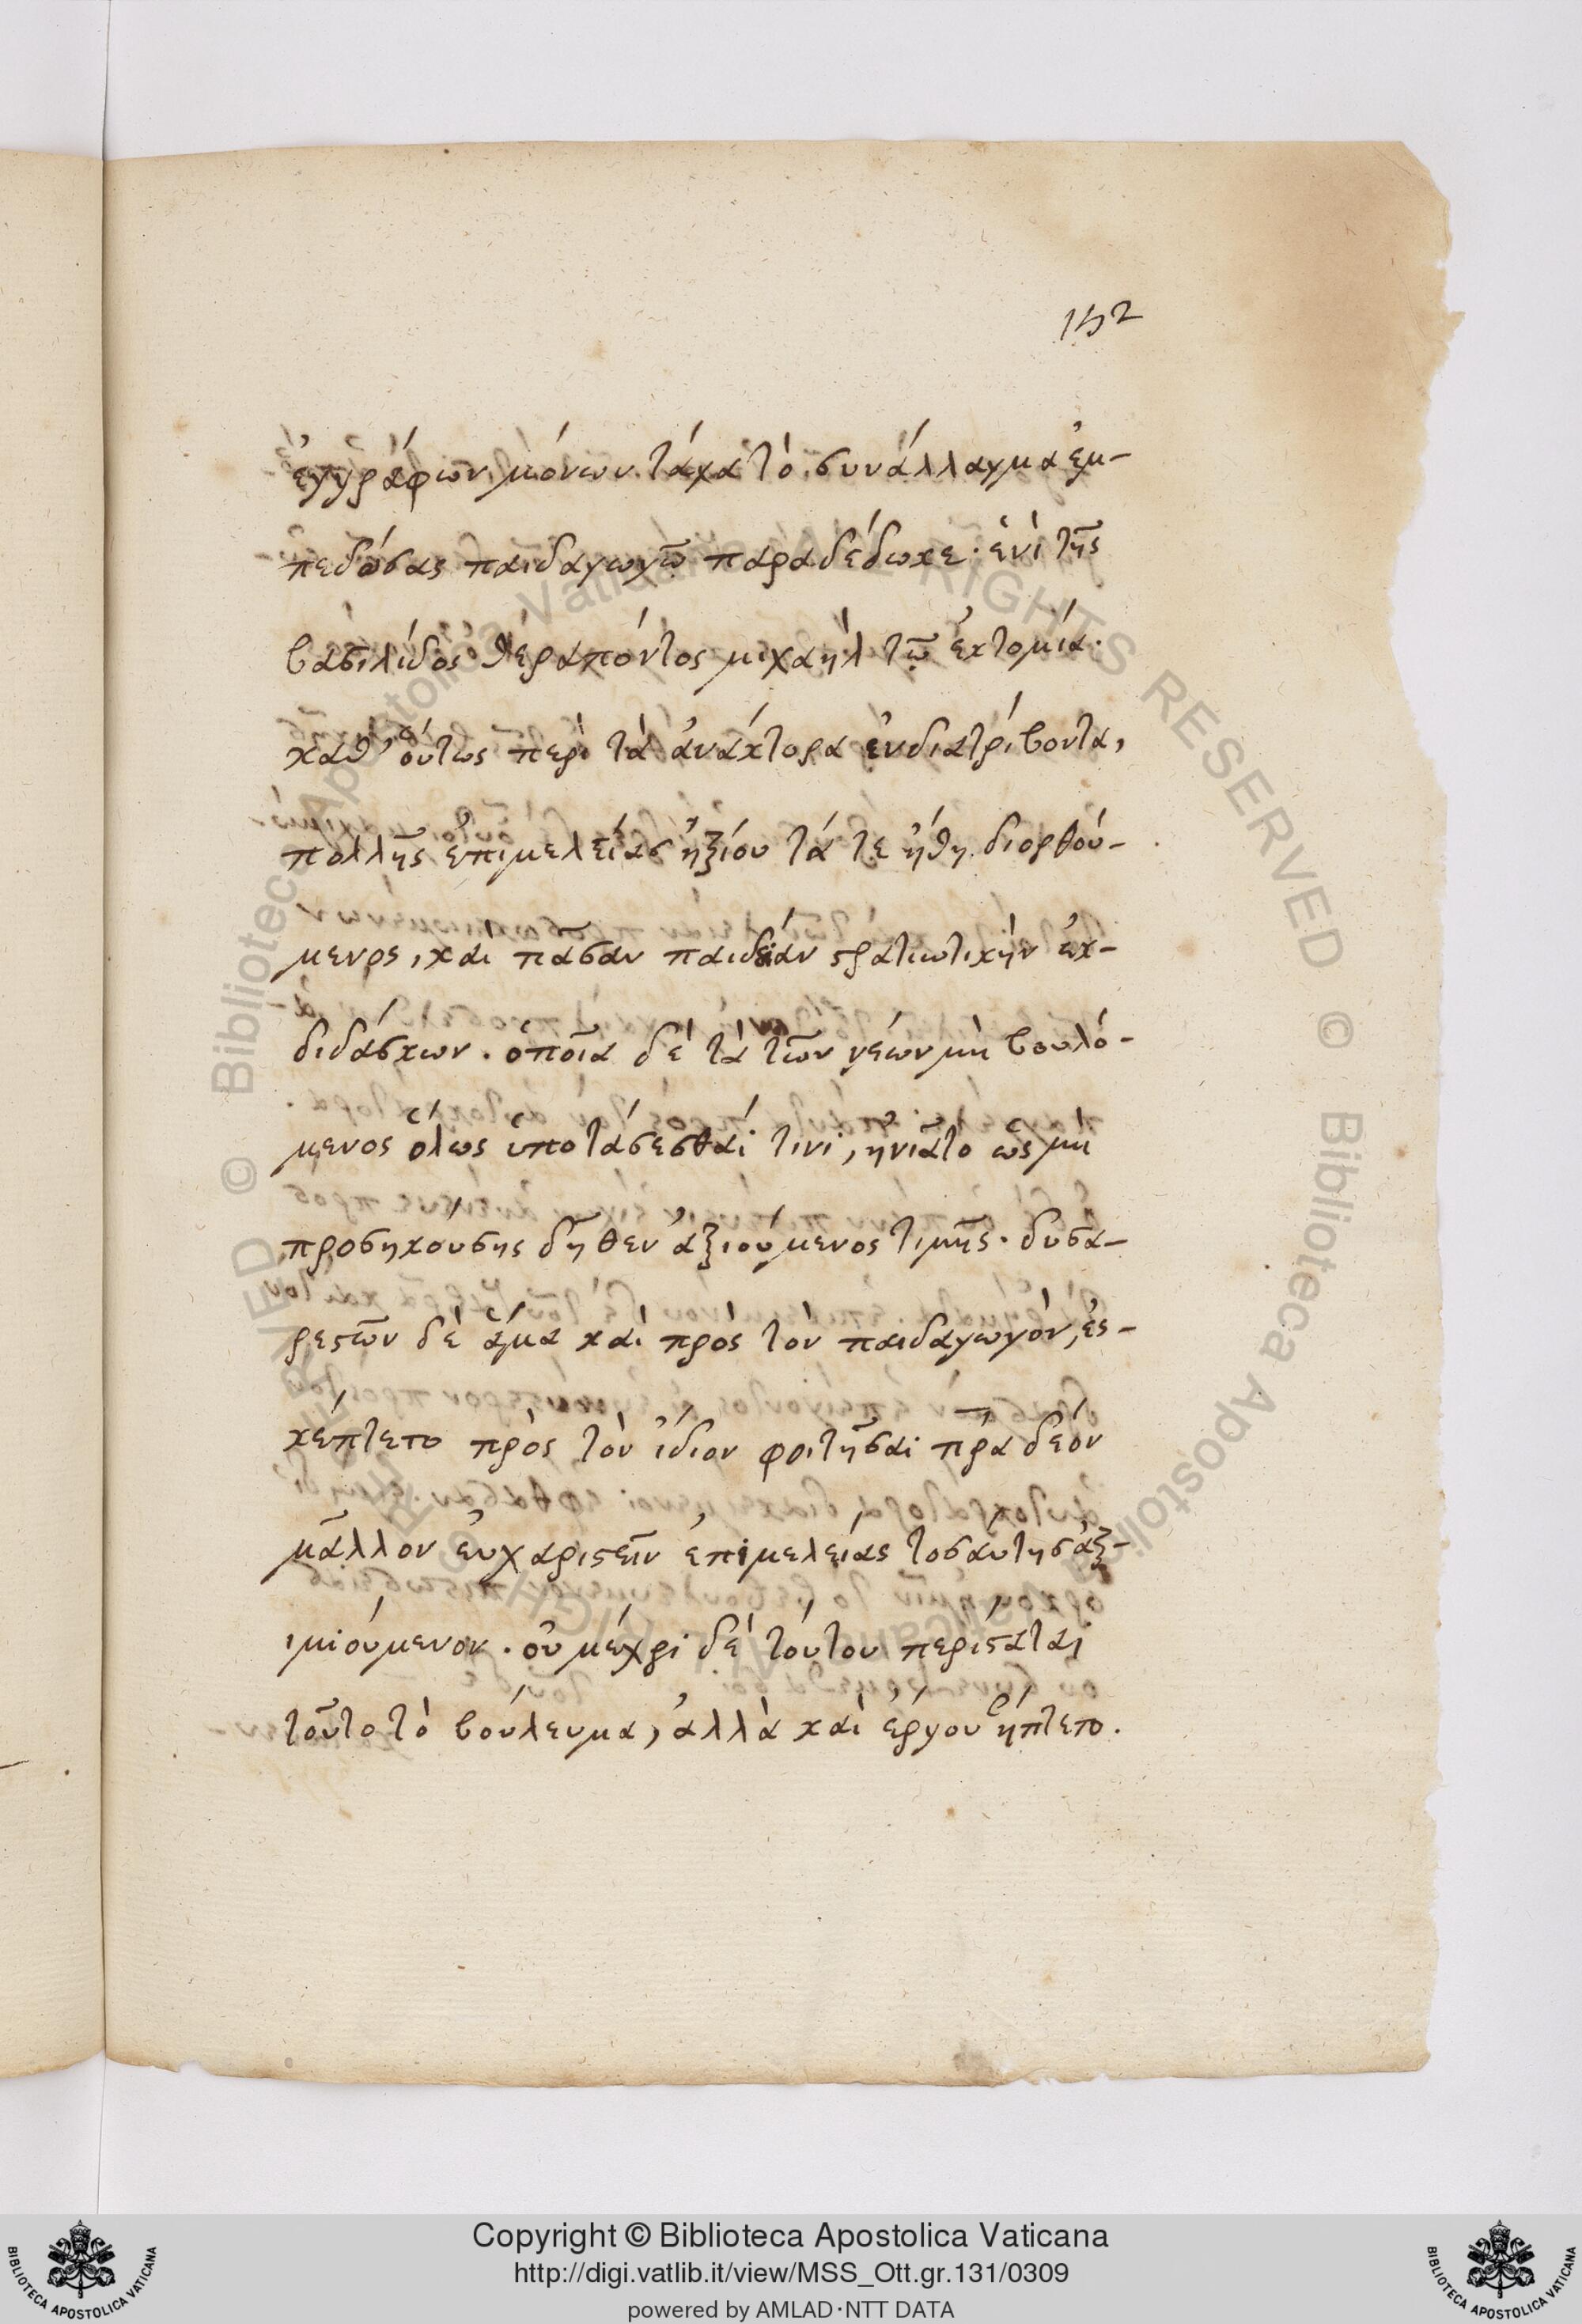 152
ἐγγράφων μόνων τάχα τὸ συνάλλαγμα ἐμ-
πεδώσας παιδαγωγῷ παραδέδωκε· ἑνὶ τῆς
βασιλίδος θεράποντος μιχαὴλ τῷ ἐκτομία·
καθ' οὕτως περὶ τὰ ἀνάκτορα ἐνδιατρίβοντα,
πολλῆς ἐπιμελείας ἠξίου τά τε ἤθη διορθού-
μενος, καὶ πᾶσαν παιδείαν στρατιωτικὴν ἐκ-
διδάσκων. ὁποῖα δὲ τὰ τῶν νέων μὴ βουλό-
μενος ὅλως ὑποτάσεσθαί τινι, ἠνιᾶτο ὡς μὴ
προσηκούσης δῆθεν ἀξιούμενος τιμῆς. δυσα-
ρεστῶν δὲ ἅμα καὶ πρὸς τὸν παιδαγωγὸν, ἐσ-
κέπτετο πρὸς τὸν ἴδιον φοιτῆσαι πρα δέον
μᾶλλον εὐχαριστεῖν ἐπιμελείας τοσαύτης ἀξ-
ιμιούμενον. οὐ μέχρι δὲ τούτου περίσταται
τοῦτο τὸ βούλευμα, ἀλλὰ καὶ ἔργου ἥπτετο.
Copyright © Biblioteca Apostolica Vaticana
http://digi.vatlib.it/view/MSS_Ott.gr.131/0309
powered by AMLAD·NTT DATA